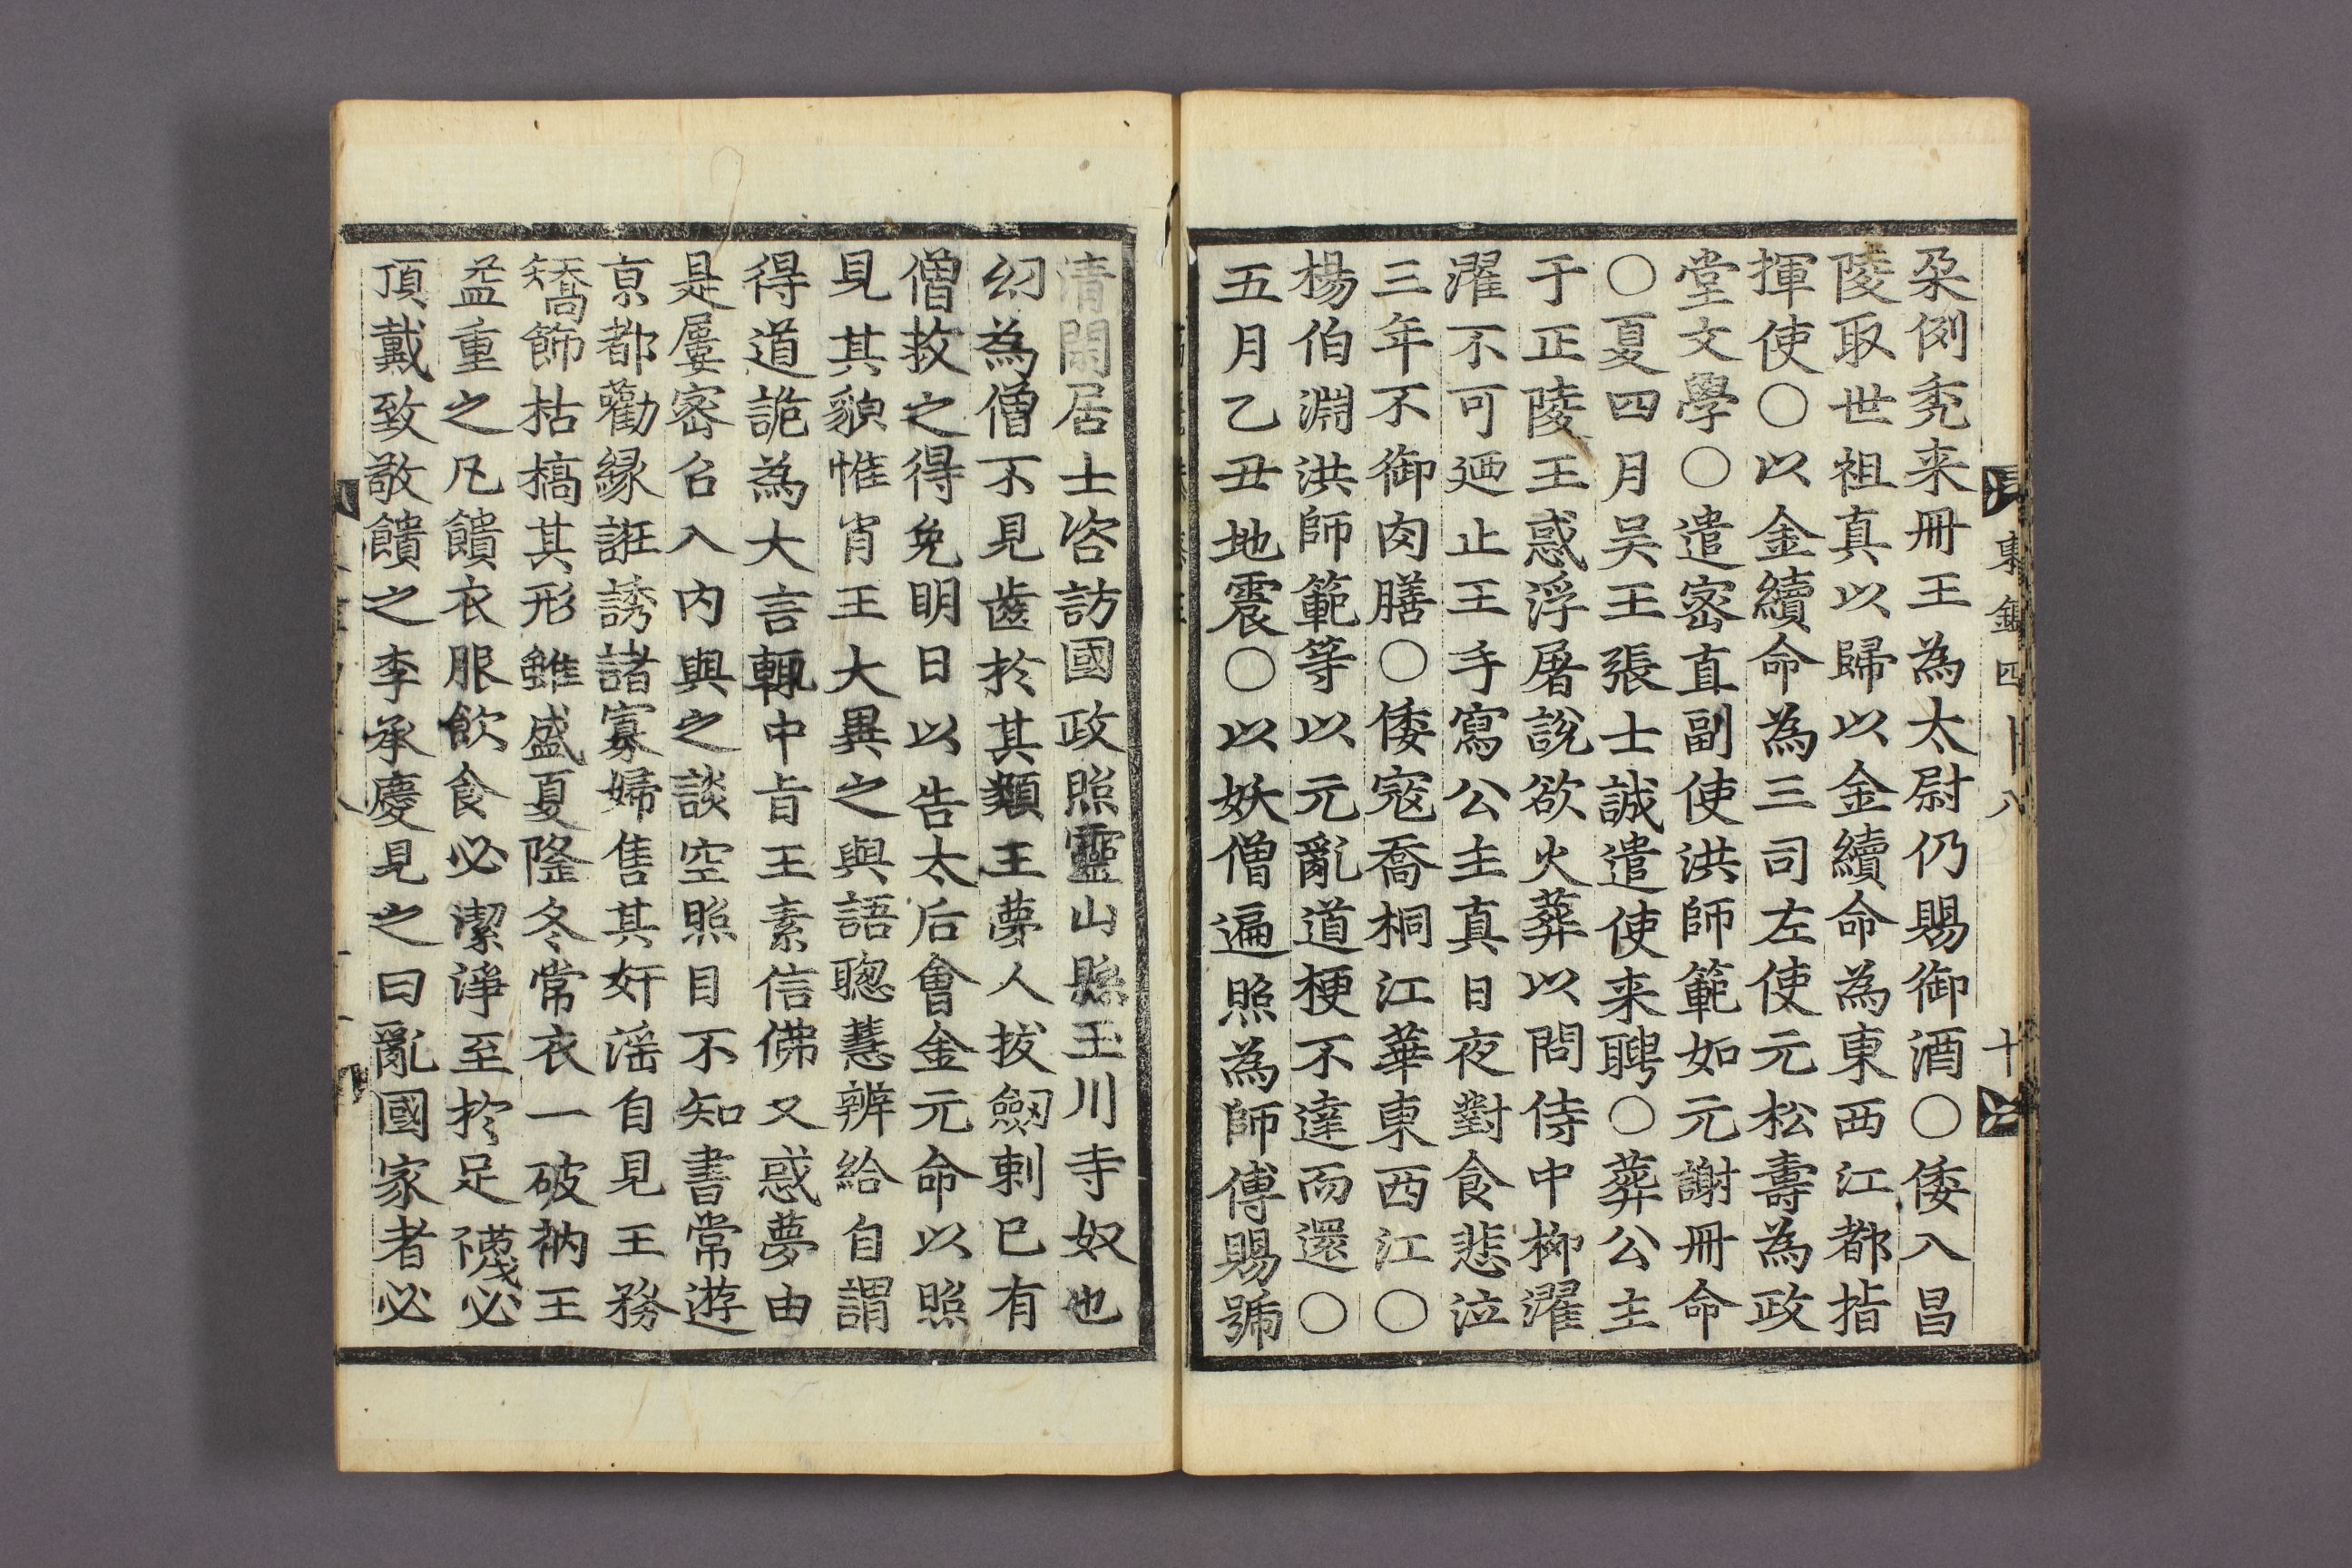 東鑑四十八 十
朶例禿来冊王為太尉仍賜御酒○倭入昌
陵取世祖真以歸以金續命為東西江都指
揮使○以金續命為三司左使元松壽為政
堂文學○遣宻直副使洪師範如元謝冊命
○夏四月吴王張士誠遣使来聘○葬公主
于正陵王惑浮屠說欲火葬以問侍中柳濯
濯不可迺止王手寫公主真日夜對食悲泣
三年不御肉膳○倭寇喬桐江華東西江○
楊伯淵洪師範等以元亂道梗不達而還○
五月乙丑地震○以妖僧遍照為師傅賜號
清閑居士咨訪國政照靈山縣玉川寺奴也
幻為僧不見齒於其類王夢人拔劔刺已有
僧救之得免明日以告太后會金元命以照
見其貌惟肖王大異之與語聦慧辨給自謂
得道詭為大言輒中旨王素信佛又惑夢由
是屢宻召入内與之談空照目不知書常遊
京都勸緣誑誘諸寡婦售其奸滛自見王務
矯飾枯槁其形雖盛夏隆冬常衣一破衲王
益重之凡饋衣服飮食必潔淨至於足襪必
頂戴致敬饋之李承慶見之曰亂國家者必